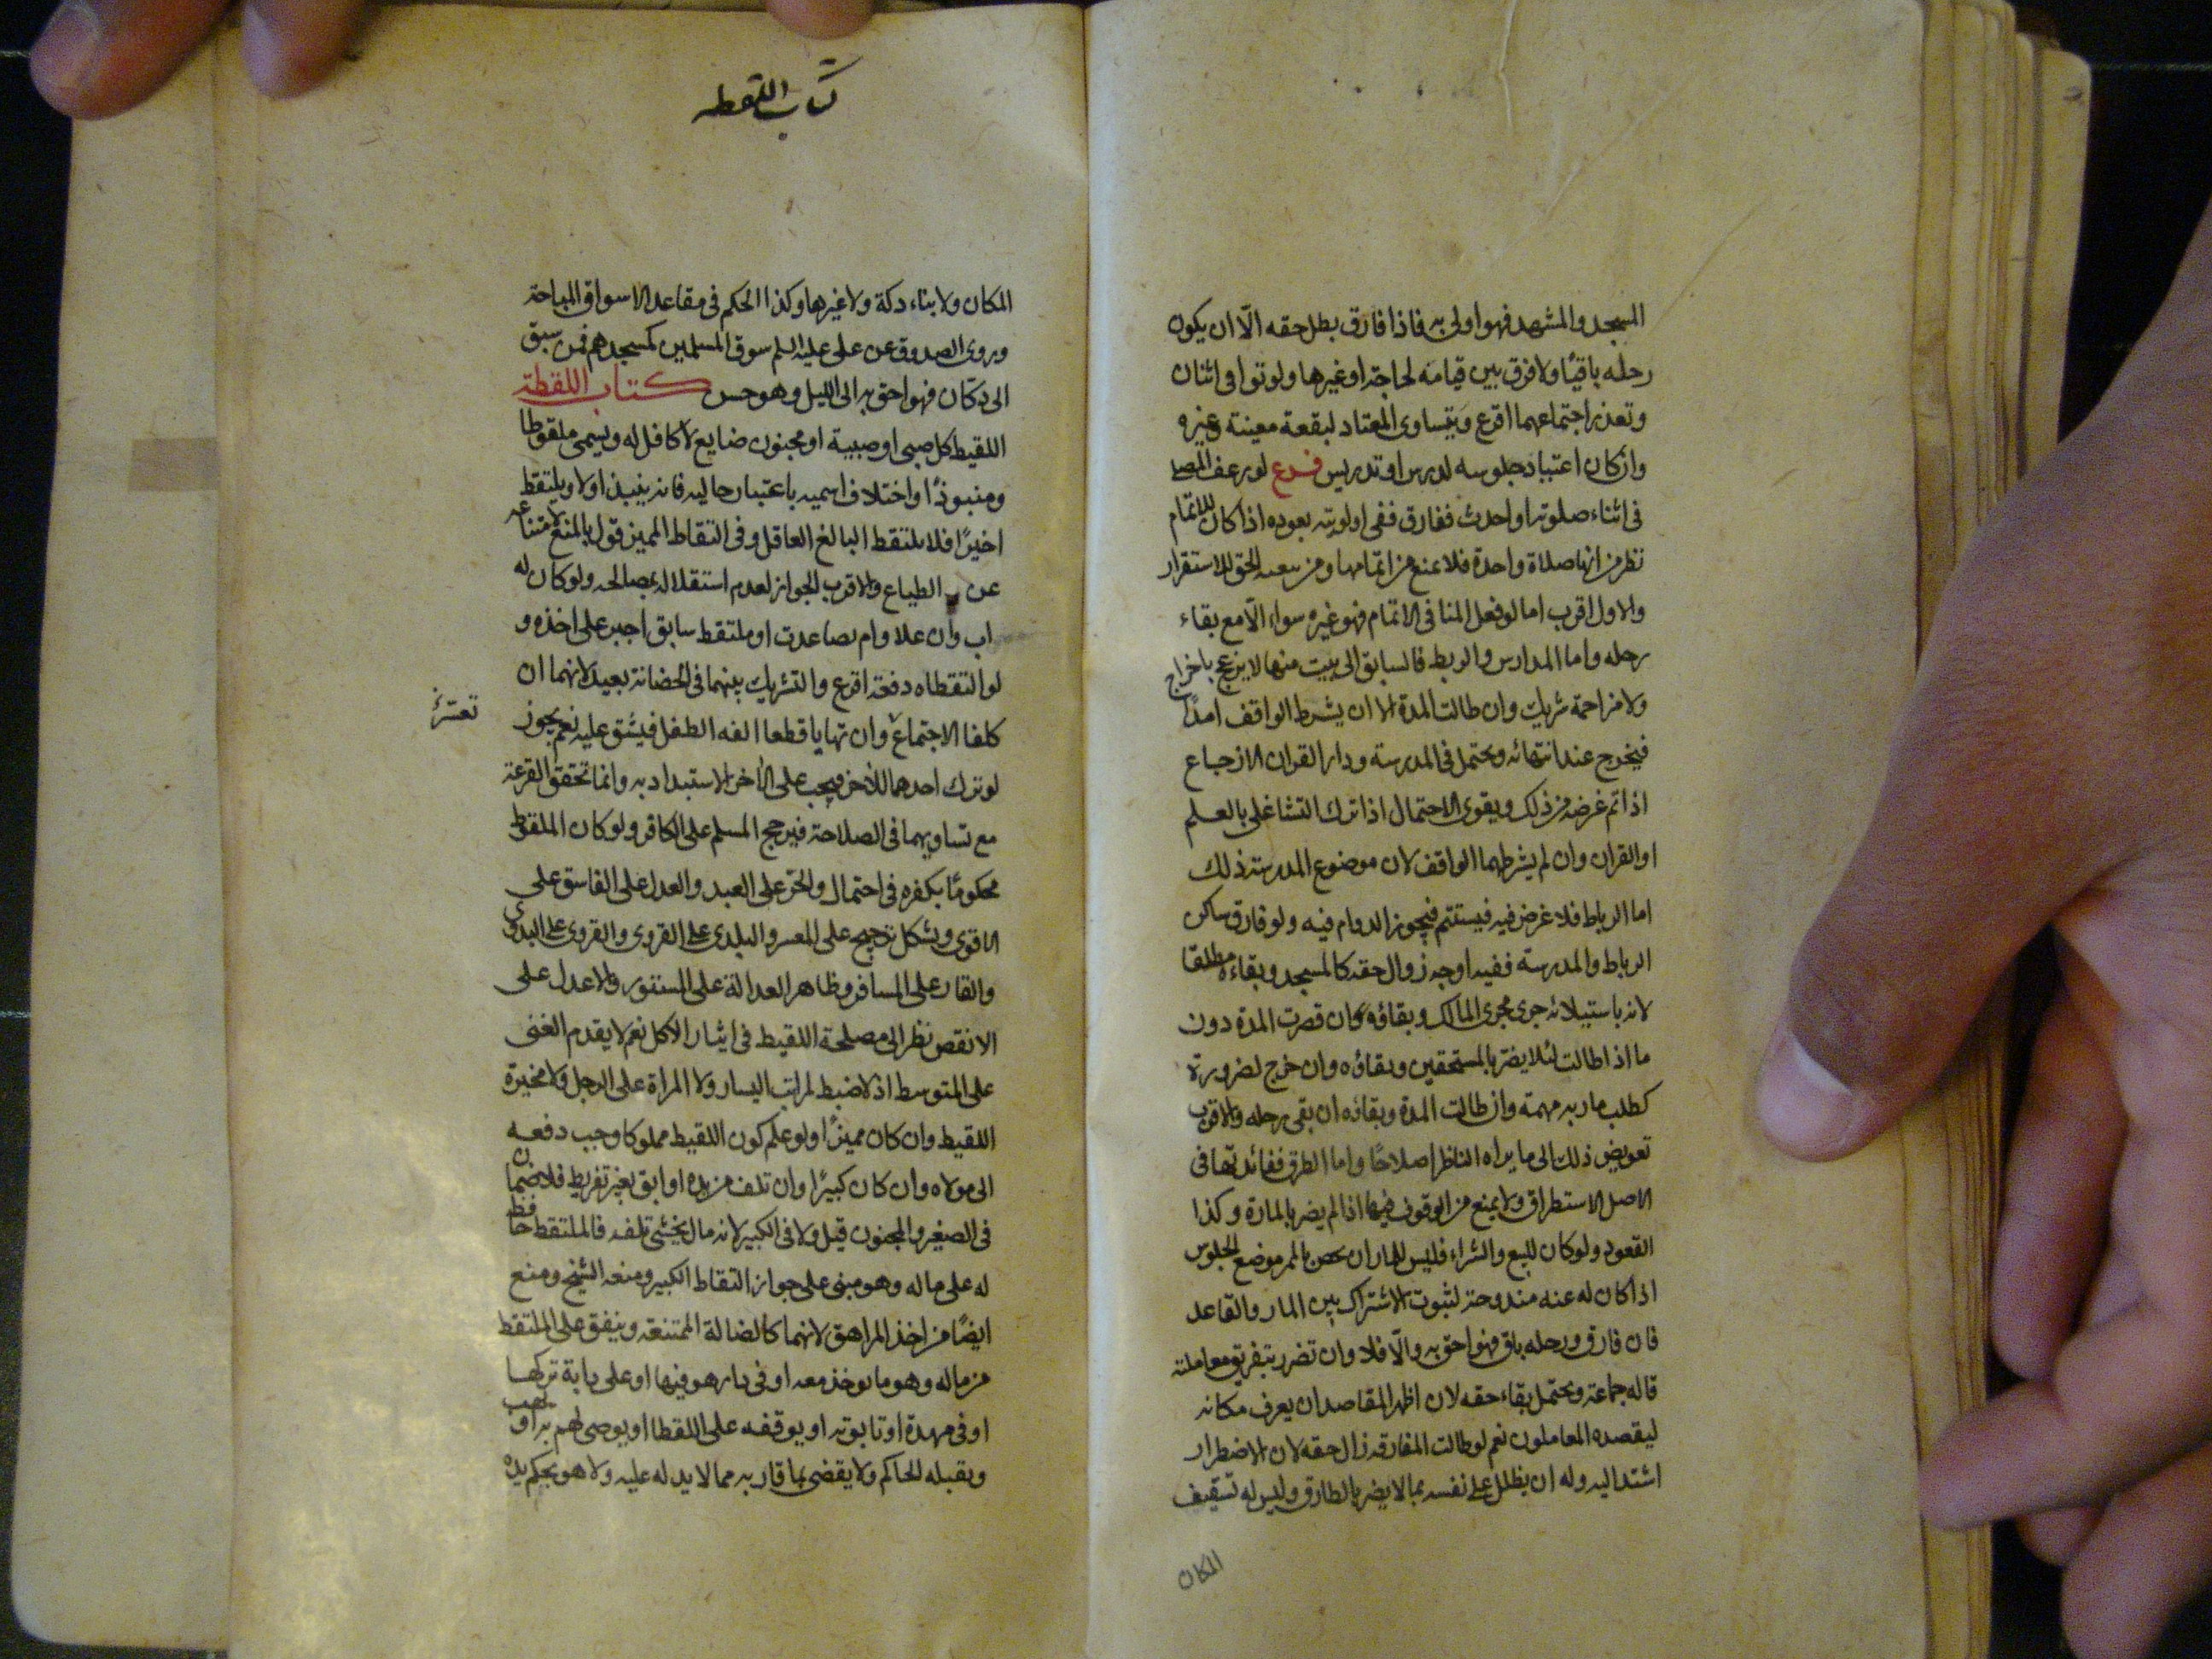 المسجد والمشهد فهو اولى به فاذا فارق بطل حقه الّا ان يكون
رحله باقيًا ولا فرق بين قيامه لحاجة او غيرها ولو توافى اثنان
وتعذر اجتماعهما اقرع ويتساوى المعتاد لبقعة معينة وغيره
وان كان اعتياد جلوسه لدرس او تدريس فرع لو رعف المصلى
فى اثناء صلوته او احدث ففارق ففى اولويته بعوده اذا كان للاتمام
نظر من انها صلاة واحدة فلا يمنع من اتمامها ومن الحق للاستقرار
والاول اقرب اما لو فعل المنافى الاتمام فهو غيره سواء الّا مع بقاء
رحله واما المدارس والربط فالسابق الى بيت منها لا يزعج باخراج
ولا مزاحمة شريك وان طالت المدة الا ان يشرط الواقف امدًا
فيخرج عند انتهائه ويحتمل فى المدرسة ودار القران الازجاع
اذا تم غرضه من ذلك ويقوى الاحتمال اذا ترك التشاغل بالعلم
او القران وان لم يشرطهما الواقف لان موضوع المدرسة ذلك
اما الرباط فلا غرض فيه فيستتم فيجوز الدوام فيه ولو فارق ساكن
الرباط والمدرسة ففيه اوجه زوال حقه كالمسجد وبقاءه مطلقا
لانه باستيلائه جرى مجرى المالك وبقاؤه كان قصرت المدة دون
ما اذا طالت لئلا يضرّ بالمستحقين وبقاؤه وان خرج لضرورة
كطلب مهمة وان طالت المدة وبقاؤه ان بقى رحله والاقرب
تعويض ذلك الى ما يراه الناظر اصلاحًا واما الطرق ففائدتها فى
الاصل الاستطراق ولا يمنع من الوقوف فيها اذا لم يضر بالمارة وكذا
القعود ولو كان للبيع والشراء فليس للمار ان بالممر موضع الجلوس
اذا كان له عنه مندوحة لثبوت الاشتراك بين المار والقاعد
فان فارق ورحله باق فهو احق به والّا فلا وان تضرر بتفريق معاملته
قاله جماعة ويحتمل بقاء حقه لان اظهر المقاصد ان يعرف مكانه
ليقصده المعاملون نعم لو طالت المفارقة زال حقه لان الاضطرار
اشتد اليه وله ان يظلل على نفسه بما لا يضر بالطارق وليس له تسقيف
المكان
كتاب اللقطه
المكان ولا بناء دكة ولا غيرها وكذا الحكم فى مقاعد الاسواق المباحة
وروى الصدوق عن على عليه السلم سوق المسلمين كمسجدهم فمن سبق
الى دكان فهو احق به الى الليل وهو حسن كتاب اللقطة
اللقيط كل صبى او صبية او مجنون ضايع لا كافل له ويسمى ملقوطا
ومنبوذًا واختلاف اسميه باعتبار حاليه فانه ينبذ اولا ويلتقط
اخيرًا فلا يلتقط البالغ العاقل وفى التقاط المميز قول بالمنع لامتناعه
عن الطياع والاقرب الجواز لعدم استقلاله بمصالحه ولو كان له
اب وان علا وام تصاعدت او ملتقط سابق اجبر على اخذه و
لو التقطاه دفعة اقرع والتشريك بينهما فى الحضانة بعيد لانهما ان
كلفا الاجتماع وان تهايا قطعا الفه الطفل فيشق عليه نعم يجوز
تعسّرا
لو ترك احدهما للآخر فيجب على الآخر الاستبداد به وانما تحقق القرعة
مع تساويهما فى الصلاحة فيرجح المسلم على الكافر ولو كان الملقوط
محكومًا بكفره فى احتمال والحرّ على العبد والعدل على الفاسق على
الاقوى ويشكل ترجيح على المعسر والبلدى على القروى والقروى على البدوى
والقار على المسافر وظاهر العدالة على المستور والاعدل على
الانقص نظر الى مصلحة اللقيط فى ايثار الاكمل نعم لا يقدم الغنى
على المتوسط اذ لا ضبط لمراتب اليسار ولا المراة على الرجل ولا مخيرة
اللقيط وان كان مميزًا ولو علم كون اللقيط مملوكا وجب دفعه
الى مولاه وان كان كبيرًا وان تلف من يده او ابق بغير تفريط فلا ضمان
فى الصغير والمجنون قيل ولا فى الكبير لانه مال يخشى تلفه فالملتقط حافظ
له على ماله وهو مبنى على جواز التقاط الكبير ومنعه الشيخ ومنع
ايضًا من اخذ المراهق لانهما كالضالة الممتنعة وينفق على الملتقط
من ماله وهو ما يوخذ معه او فى دار هو فيها او على دابة تركها
او فى مهدة او تابوته او يوقفه على اللقطا او يوصى لهم به او
ويقبله الحاكم ولا يقضى بما قاربه مما لا يد له عليه ولا هو بحكم يده